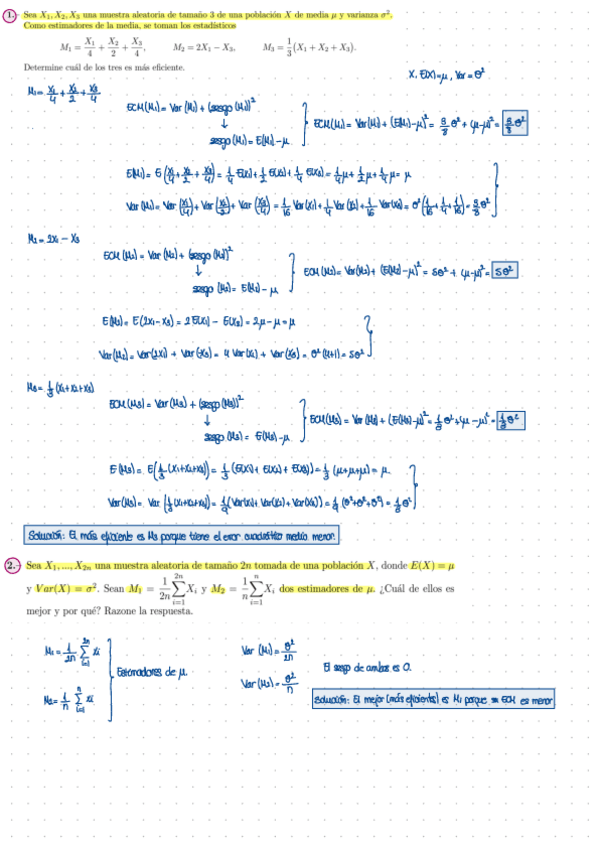 1.- Sea X₁, X₂, X₃ una muestra aleatoria de tamaño 3 de una población X de media μ y varianza σ².
Como estimadores de la media, se toman los estadísticos
M₁ = X₁/4 + X₂/2 + X₃/4, M₂ = 2X₁ − X₃, M₃ = 1/3 (X₁ + X₂ + X₃).
Determine cuál de los tres es más eficiente.
X, E(X)=μ, Var = σ²
M₁ = X₁/4 + X₂/2 + X₃/4
ECM(M₁) = Var(M₁) + (sesgo(M₁))²
↓
sesgo(M₁) = E(M₁) − μ
ECM(M₁) = Var(M₁) + (E(M₁)−μ)² = 3/8 σ² + (μ−μ)² = 3/8 σ²
E(M₁) = E(X₁/4 + X₂/2 + X₃/4) = 1/4 E(X₁) + 1/2 E(X₂) + 1/4 E(X₃) = 1/4 μ + 1/2 μ + 1/4 μ = μ
Var(M₁) = Var(X₁/4) + Var(X₂/2) + Var(X₃/4) = 1/16 Var(X₁) + 1/4 Var(X₂) + 1/16 Var(X₃) = σ²(1/16 + 1/4 + 1/16) = 3/8 σ²
M₂ = 2X₁ − X₃
ECM(M₂) = Var(M₂) + (sesgo(M₂))²
↓
sesgo(M₂) = E(M₂) − μ
ECM(M₂) = Var(M₂) + (E(M₂)−μ)² = 5σ² + (μ−μ)² = 5σ²
E(M₂) = E(2X₁ − X₃) = 2E(X₁) − E(X₃) = 2μ − μ = μ
Var(M₂) = Var(2X₁) + Var(X₃) = 4 Var(X₁) + Var(X₃) = σ²(4+1) = 5σ²
M₃ = 1/3 (X₁+X₂+X₃)
ECM(M₃) = Var(M₃) + (sesgo(M₃))²
↓
sesgo(M₃) = E(M₃) − μ
ECM(M₃) = Var(M₃) + (E(M₃)−μ)² = 1/3 σ² + (μ−μ)² = 1/3 σ²
E(M₃) = E(1/3 (X₁+X₂+X₃)) = 1/3 (E(X₁) + E(X₂) + E(X₃)) = 1/3 (μ+μ+μ) = μ.
Var(M₃) = Var(1/3 (X₁+X₂+X₃)) = 1/9 (Var(X₁) + Var(X₂) + Var(X₃)) = 1/9 (σ²+σ²+σ²) = 1/3 σ²
Solución: El más eficiente es M₃ porque tiene el error cuadrático medio menor.
2.- Sea X₁, ..., X₂ₙ una muestra aleatoria de tamaño 2n tomada de una población X, donde E(X) = μ
y Var(X) = σ². Sean M₁ = 1/2n ∑_{i=1}^{2n} Xᵢ y M₂ = 1/n ∑_{i=1}^{n} Xᵢ dos estimadores de μ. ¿Cuál de ellos es
mejor y por qué? Razone la respuesta.
M₁ = 1/2n ∑_{i=1}^{2n} Xᵢ
M₂ = 1/n ∑_{i=1}^{n} Xᵢ
Estimadores de μ.
Var(M₁) = σ²/2n
Var(M₂) = σ²/n
El sesgo de ambos es 0.
Solución: El mejor (más eficiente) es M₁ porque su ECM es menor